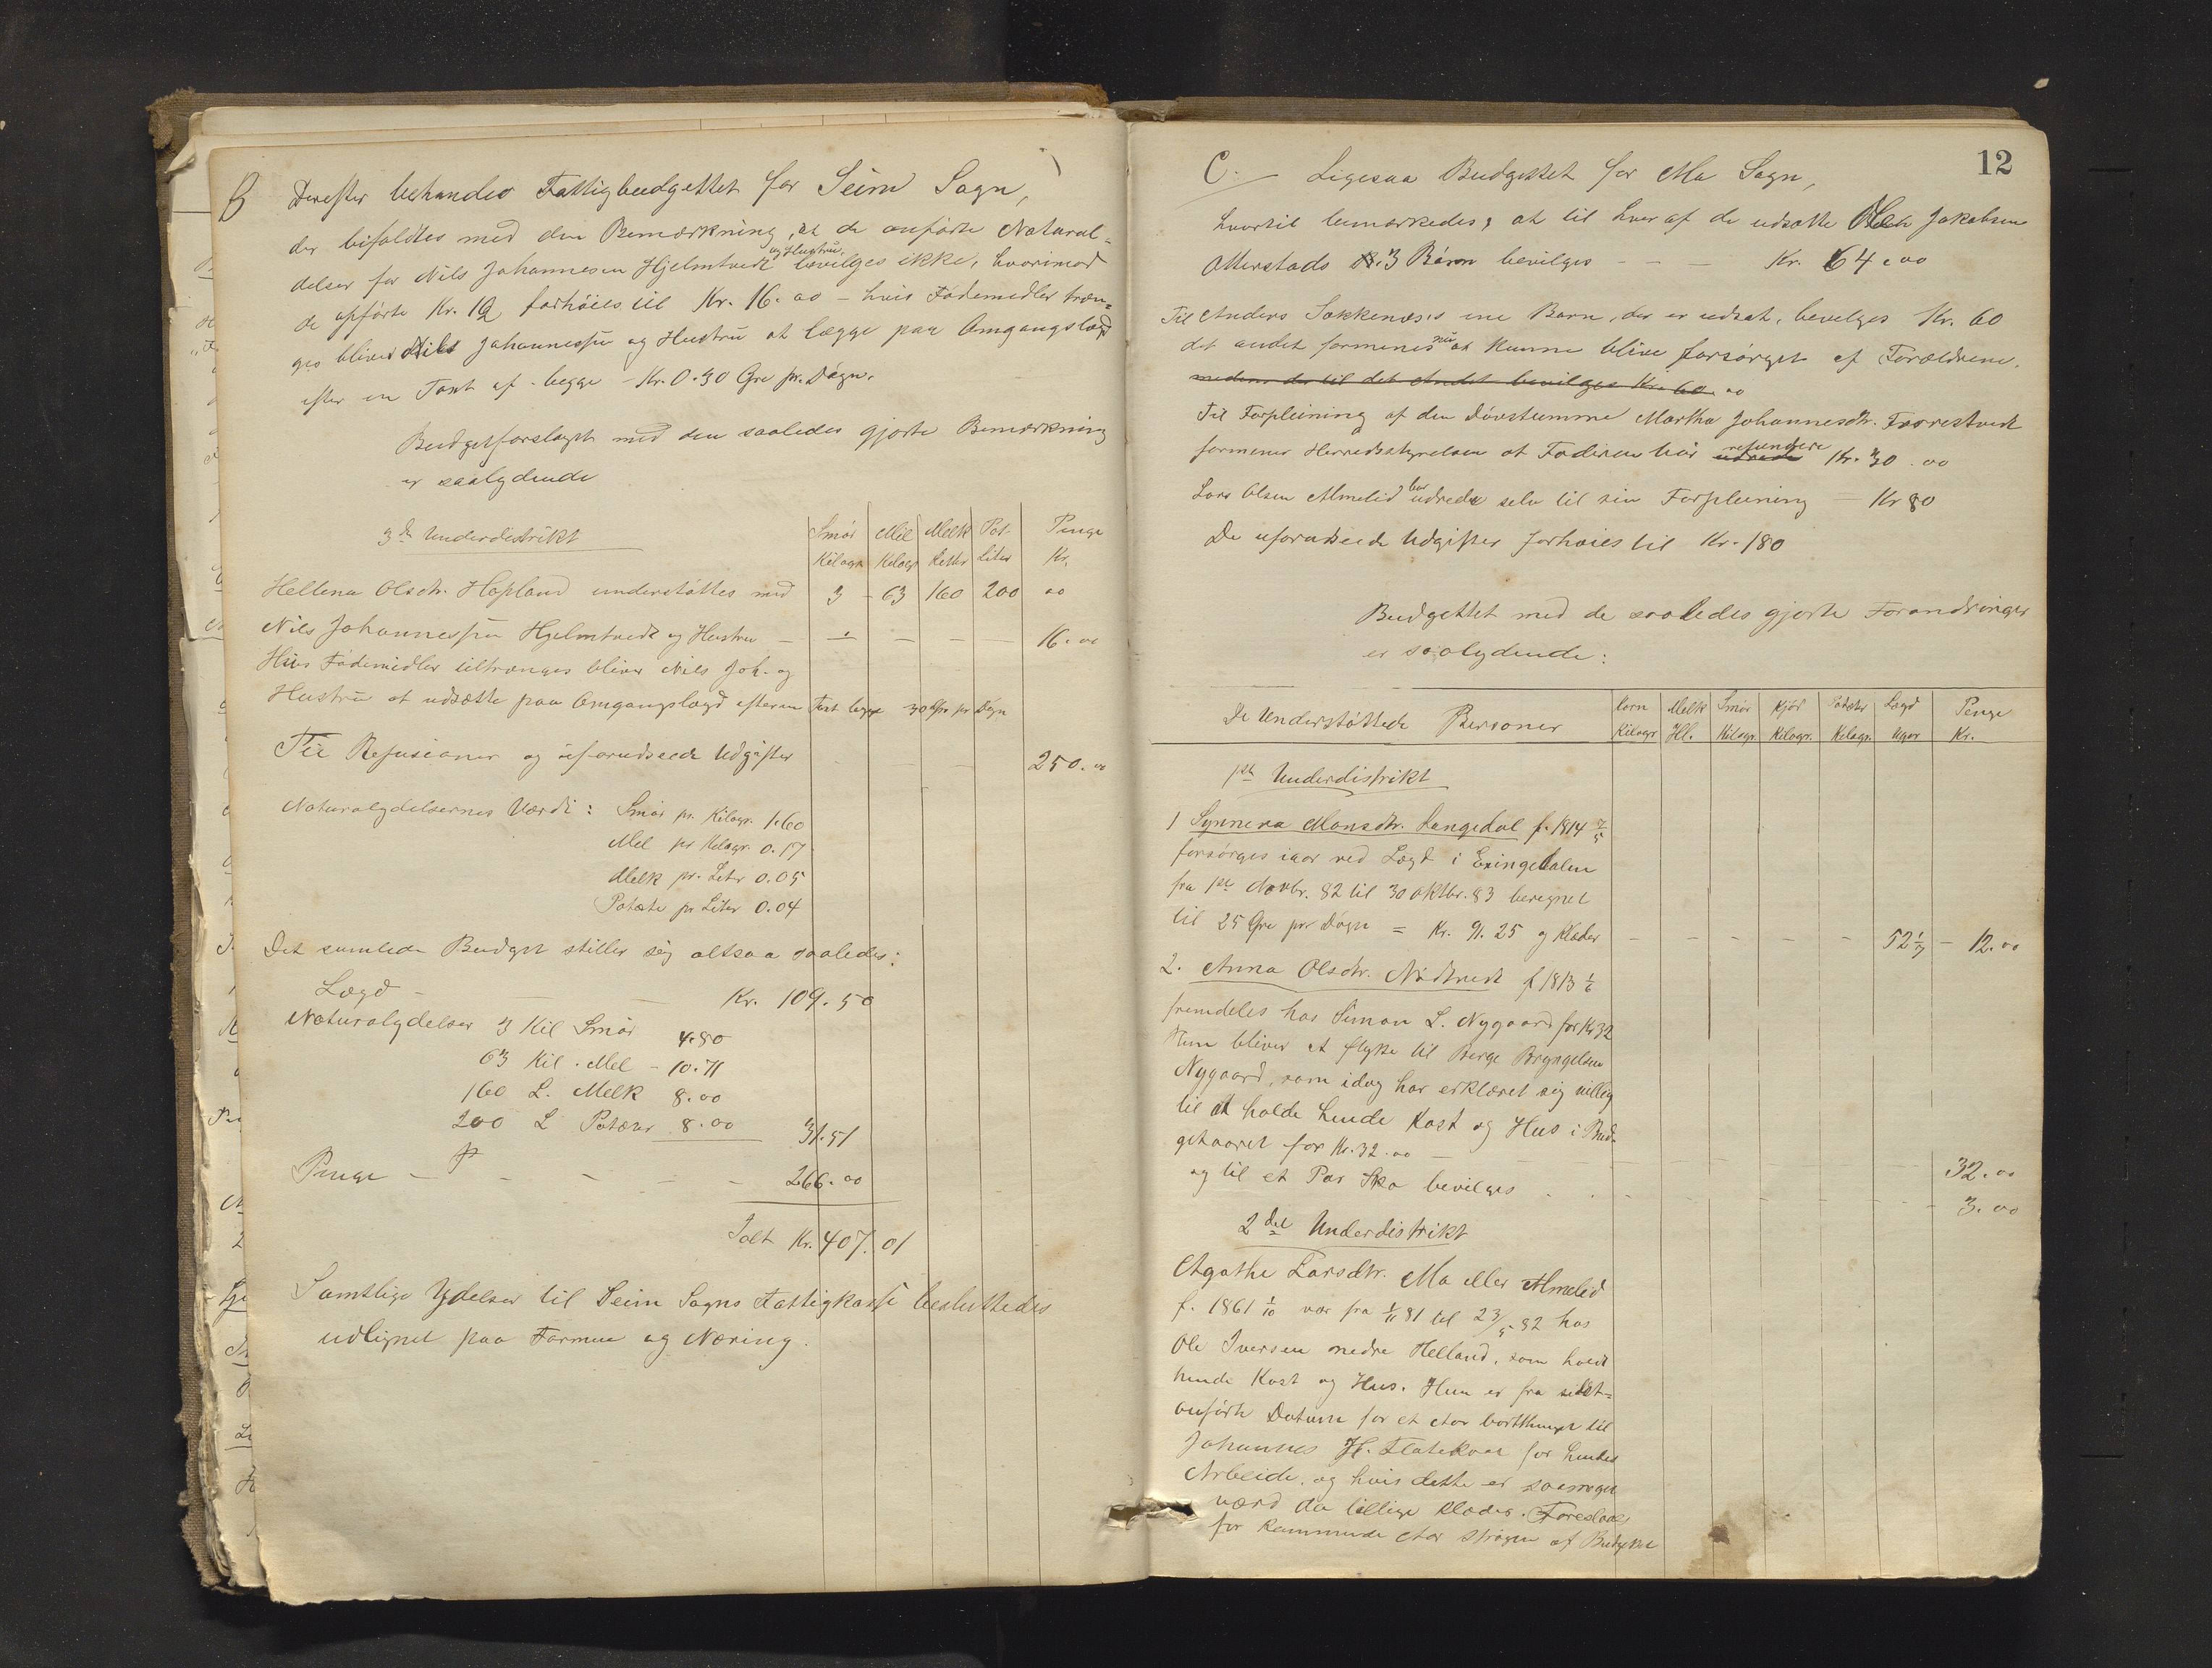 B Derefter behandles Fattigbudgettet for Seim Sogn,
der bifaldtes med den Bemærkning, at de anførte Natural-
delser for Nils Johannesen Hjelmtvedt og Hustru bevilges ikke, hvorimod
de opførte Kr. 12 forhøies til Kr. 16.00 - hvis Fødemidler træn-
ges bliver Nils Johannessen og Hustru at lægge paa Omgangslægd
efter en Taxt af begge - Kr. 0.30 Øre pr. Døgn.
Budgetforslaget med den saaledes gjorte Bemærkning
er saalydende
3de Underdistrikt
Smør Mel Melk Pot. Penge
Kilogr. Kilogr. Liter Liter Kr.
Hellena Olsdtr. Hopland understøttes med 3 - 63 160 200 00
Nils Johannessen Hjelmtvedt og Hustru - - - - - 16.00
Hvis Fødemidler tiltrænges bliver Nils Joh. og
Hustru at udsætte paa Omgangslægd efter en Taxt begge 30 Øre pr Døgn
Til Refusioner og uforudseede Udgifter - - - 250.00
Naturalydelsernes Værdi: Smør pr. Kilogr. 1.60
Mel pr Kilogr. 0.17
Melk pr. Liter 0.05
Potete pr Liter 0.04
Det samlede Budget stiller sig altsaa saaledes:
Lægd - - - Kr. 109.50
Naturalydelser 3 Kil Smør 4.80
63 Kil. Mel - 10.71
160 L. Melk 8.00
200 L Poteter 8.00 31.51
Penge - - - - - - 266.00
Ialt Kr. 407.01
Samtlige Ydelser til Seim Sogns Fattigkasse besluttedes
udlignet paa Formue og Næring.
12
C. Ligesaa Budgettet for Mo Sogn,
hvortil bemærkedes, at til hver af de udsatte Ole Jakobsen
Otterstads 3 Børn bevilges - - - Kr. 64.00
Til Anders Sakkenæs's ene Barn, der er udsat, bevilges Kr. 60
det andet formenes nu at kunne blive forsørget af Forældrene.
medens der til det Andet bevilges Kr. 60.00
Til Forpleining af den døvstumme Martha Johannesdtr. Farrestvedt
formener Herredsstyrelsen at Faderen bør udrede refundere Kr. 30.00
Lars Olsen Almelid bør udrede selv til sin Forpleining - Kr 80
De uforudseede Udgifter forhøies til Kr. 180
Budgettet med de saaledes gjorte Forandringer
er saalydende:
De Understøttede Personer
Korn Melk Smør Kjød Poteter Lægd Penge
Kilogr Hl. Kilogr. Kilogr. Kilogr. Uger Kr.
1ste Underdistrikt
1 Synneva Monsdtr. Langedal f. 1814 7/5
forsørges iaar ved Lægd i Exingedalen
fra 1ste Novbr. 82 til 30 Oktbr. 83 beregnet
til 25 Øre pr Døgn = Kr. 91.25 og Klæder - - - - - 52 1/7 - 12.00
2. Anna Olsdtr. Nødtvedt f 1813 1/6
fremdeles hos Simon L. Nygaard for Kr 32
Hun bliver at flytte til Berge Bryngelsen
Nygaard, som idag har erklæret sig villig
til at holde hende Kost og Hus i Bud-
getaaret for Kr. 32.00 - 32.00
og til et Par Sko bevilges - 3.00
2det Underdistrikt
Agathe Larsdtr. Mo eller Almelid
f. 1861 1/10 var fra 1/11 81 til 23/5 82 hos
Ole Iversen nedre Helland, som holdt
hende Kost og Hus. Hun er fra sidst-
anførte Datum for et Aar bortthinget til
Johannes H. Flatekval for hendes
Arbeide, og hvis dette er saameget
værd da tillige Klæder. Foreslaaes
for kommende Aar strøgen af Budgettet